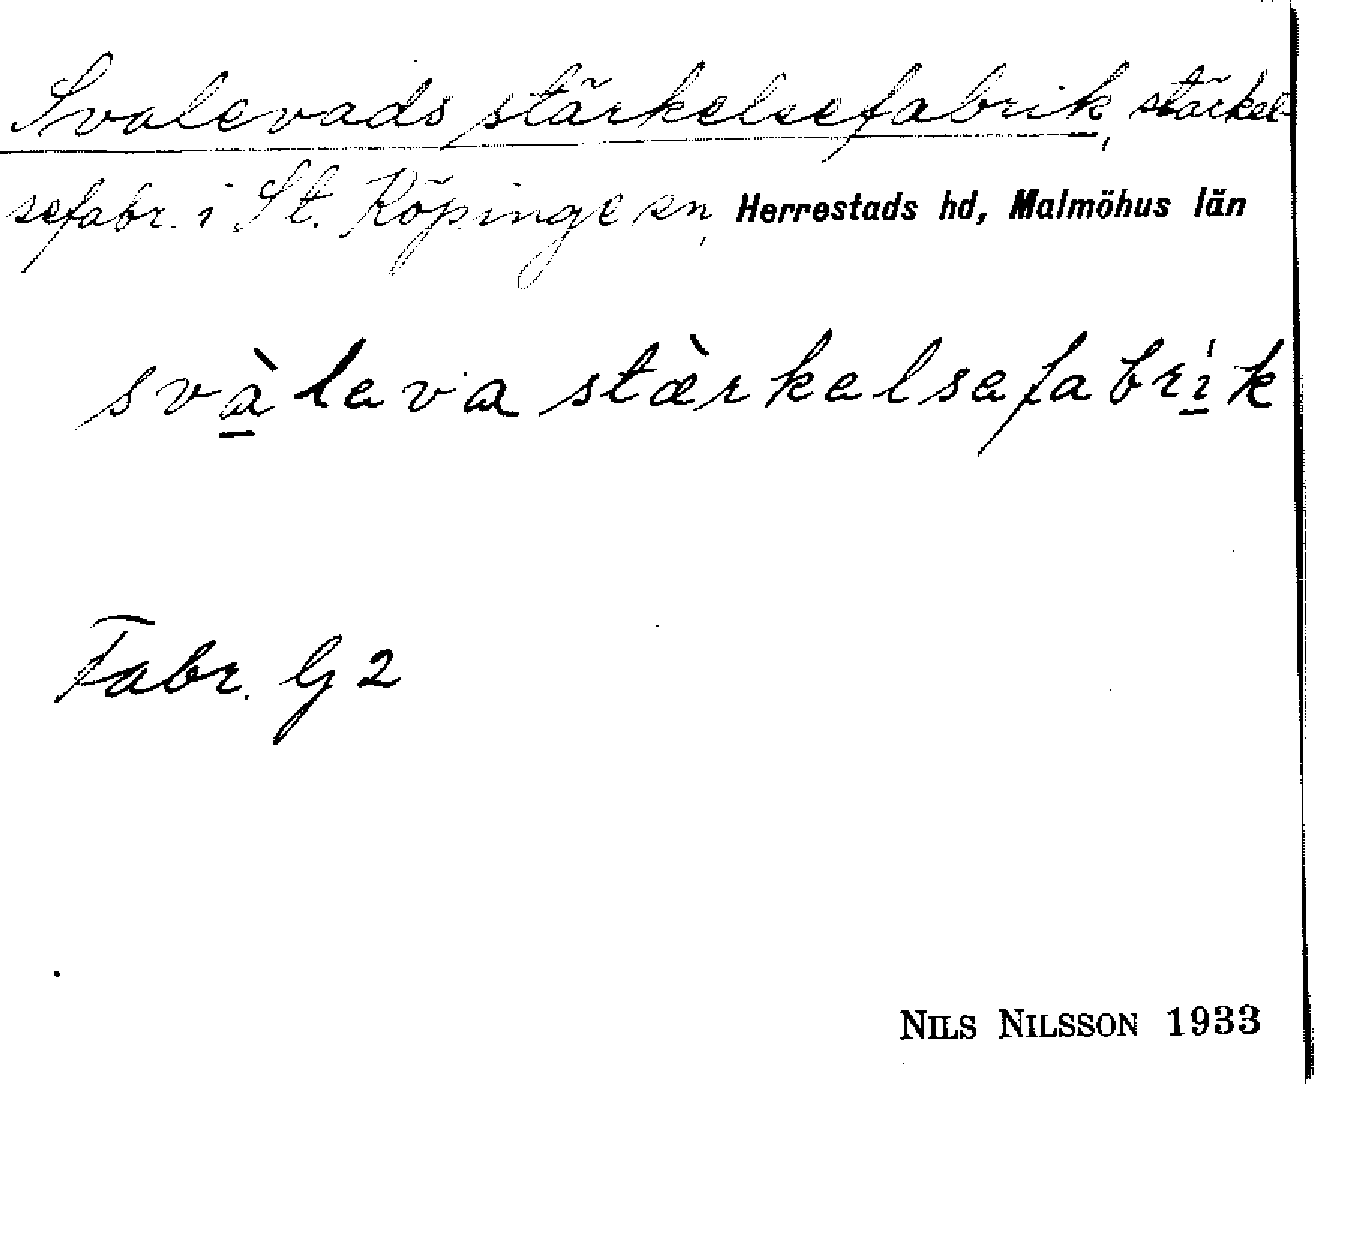 Svalevads stärkelsefabrik, stärkel-
sefabr. i St. Köpinge sn, Herrestads hd, Malmöhus län
svàleva stæ̀rkelsefabrík
Fabr. G 2
NILS NILSSON 1933